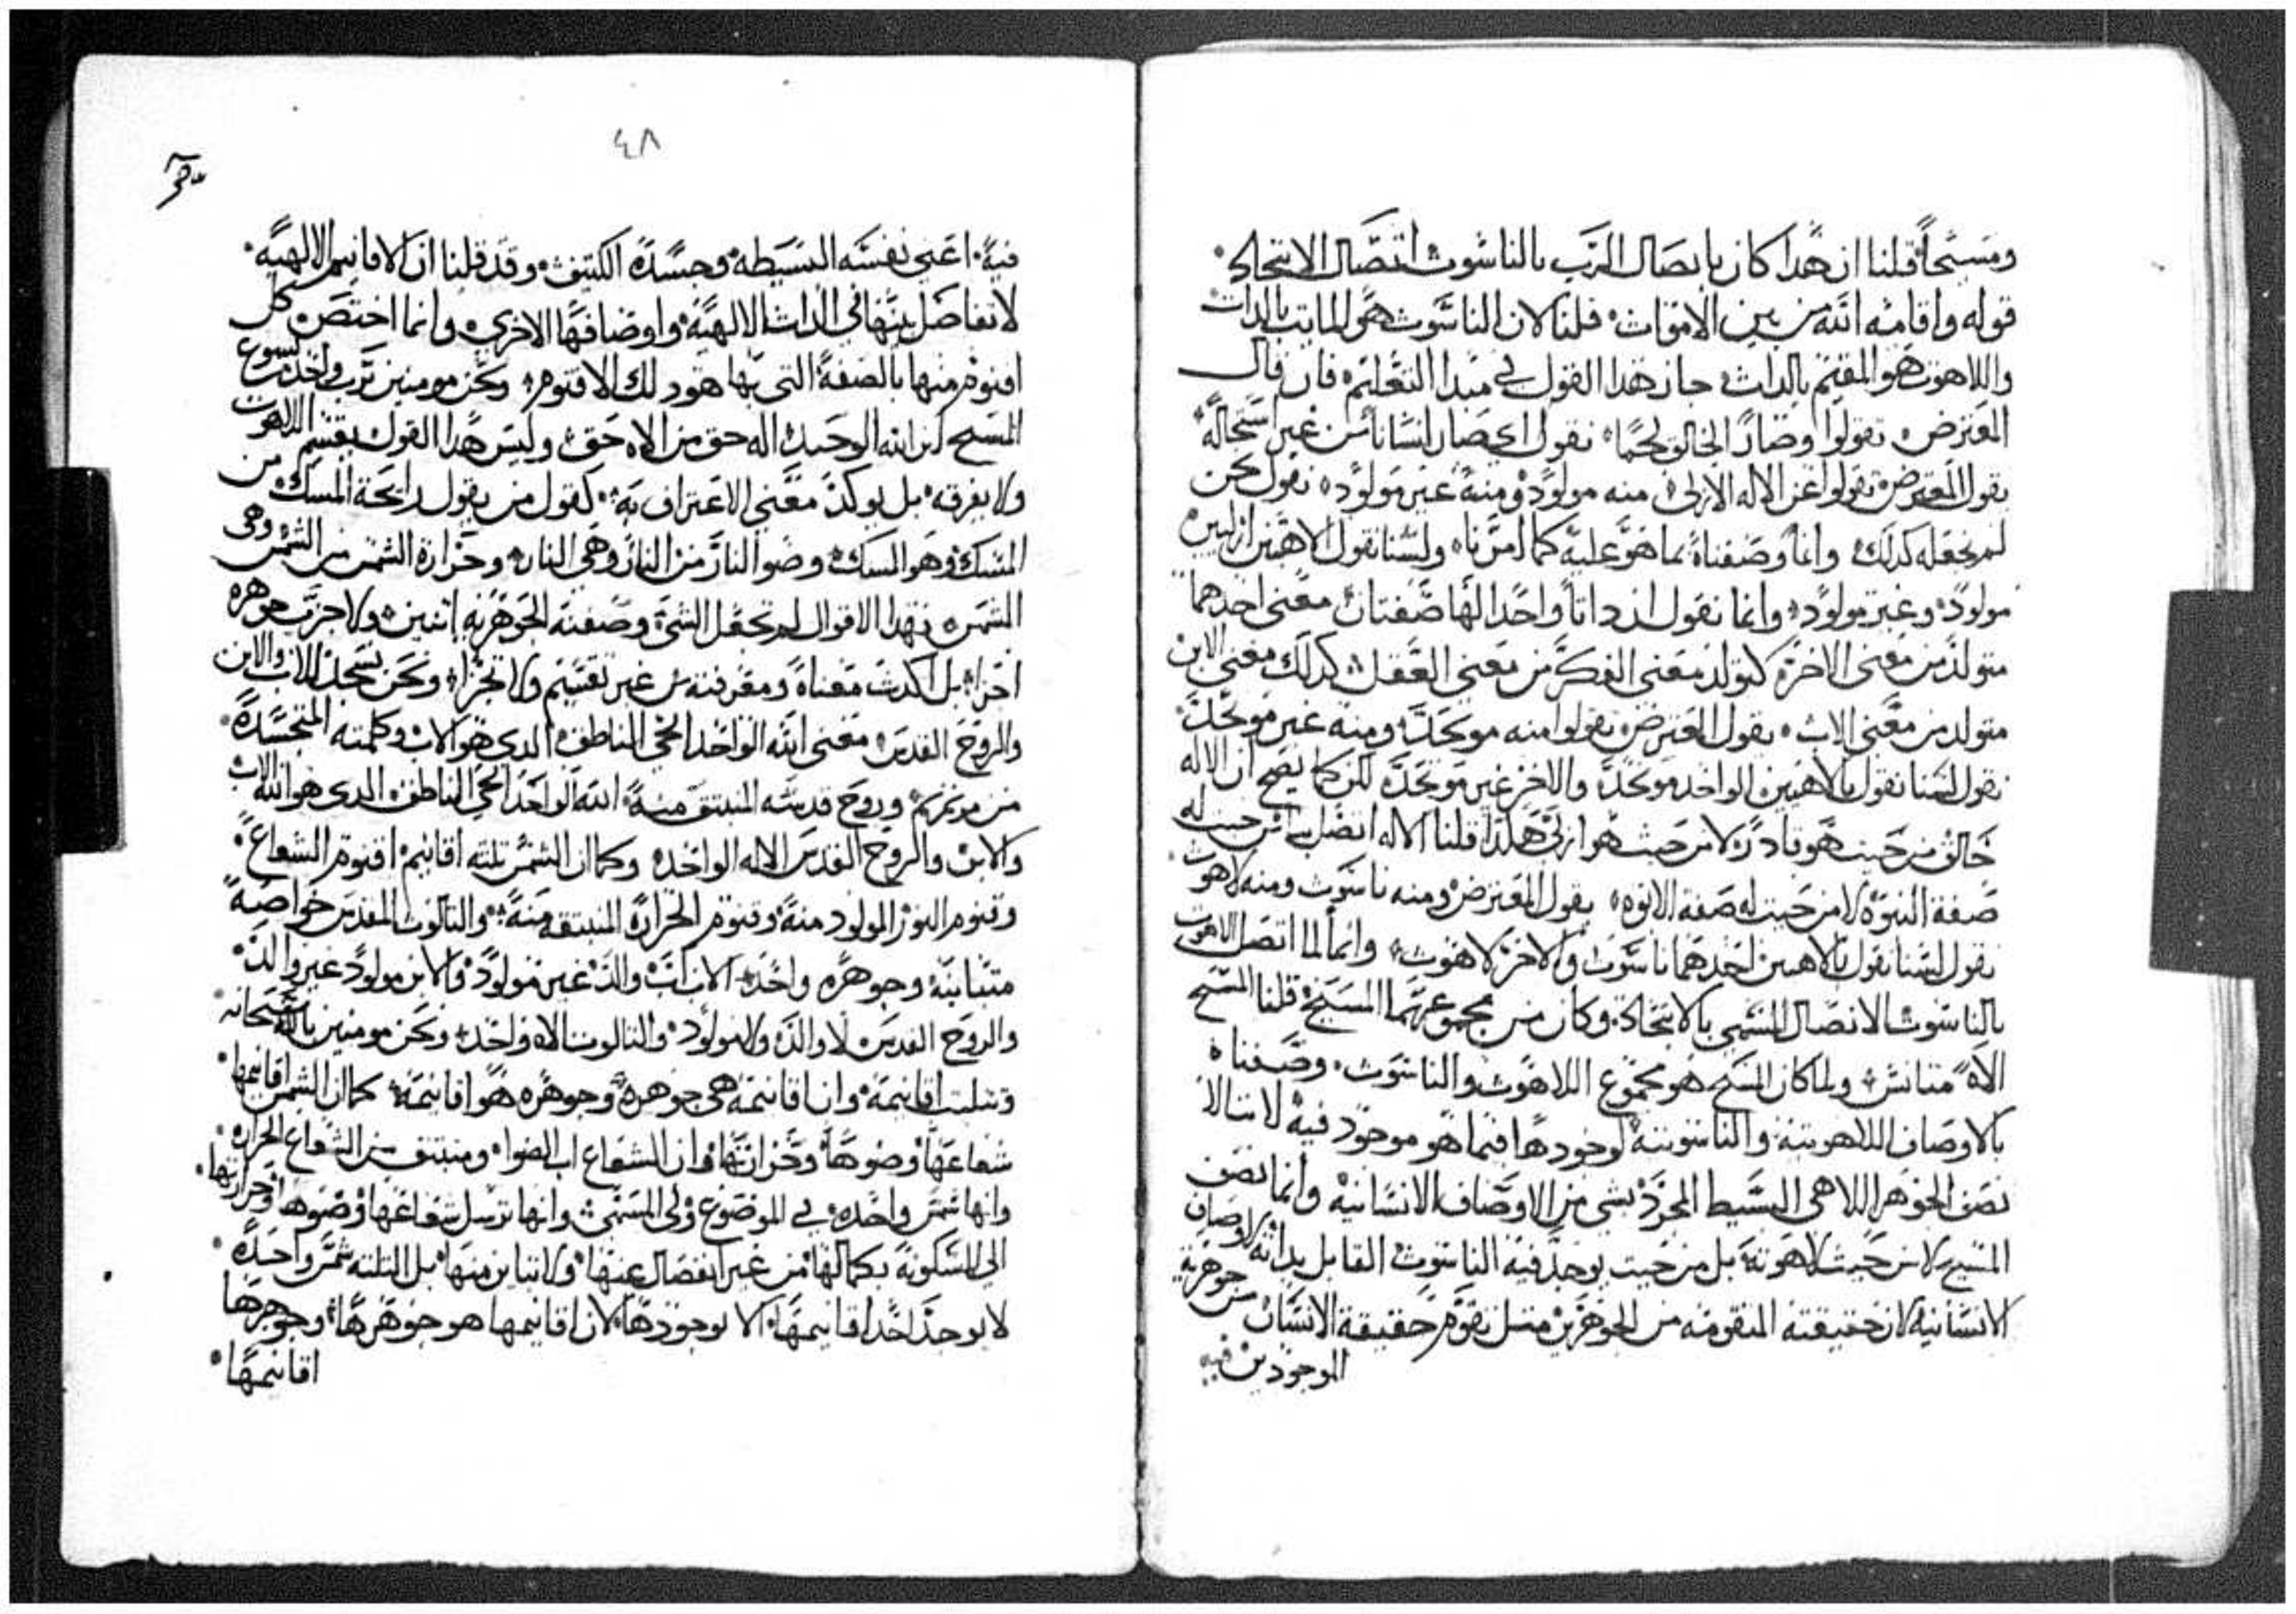 ومسيحاً قلنا ان هدا كان باتصال الرب بالناسوت اتصال الاتحاد
قوله واقامه الله من بين الاموات قلنا لان الناسوت هو المايت بالدات
واللاهوت هو المقيم بالدات جاز هدا القول في مبدا التعليم فان قال
المعترض تقولوا وصار الخالق لحما نقول اي صار انسانا من غير استحالة
يقول المعترض تقولوا عن الاله الازلي منه مولود ومنه غير مولود نقول نحن
لم نجعله كدلك وانما وصفناه بما هو عليه كما امرنا ولسنا نقول الاهين ازليين
مولود وغير مولود وانما نقول ان داتاً واحدا لها صفتان معنى احدهما
متولد من معنى الاخرة كتولد معنى الفكر من معنى العقل كدلك معنى الابن
متولد من معنى الاب يقول المعترض تقولوا منه موحد ومنه غير موحد
نقول لسنا نقول بالاهين الواحد موحد والاخر غير موحد لكن كما يصح ان الاله
خالق من حيث هو قادر لا من حيث هو ازلي هكدا قلنا الاله اتصل بنا من حيث له
صفة البنوة لا من حيث له صفة الابوه يقول المعترض ومنه ناسوت ومنه لاهوت
نقول لسنا نقول بالاهين احدهما ناسوت والاخر لاهوت وانما لما اتصل اللاهوت
بالناسوت الاتصال المسمي بالاتحاد وكان من مجموعهما المسيح قلنا المسيح
الاه متانس ولما كان المسيح هو مجموع اللاهوت والناسوت وصفناه
بالاوصاف اللاهوتيه والناسوتيه لوجودها فيما هو موجود فيه لاننا لا
نصف الجوهر اللاهي البسيط المجرد بشي من الاوصاف الانسانيه وانما نصف
المسيح لا من حيث لاهوته بل من حيث يوجد فيه الناسوت القابل بداته الاوصاف
الانسانية لان حقيقته المتقومه من الجوهرين متل تقوم حقيقة الانسان من جوهرية
الموجودين فيه
٤٨
فيه اعني نفسه البسيطه وجسده الكتيف وقد قلنا ان الاقانيم الالهيه
لا تفاضل بينها في الدات الالهية واوصافها الاخري وانما اختص كل
اقنوم منها بالصفة التي بها هو دلك الاقنوم ونحن مومنين برب واحد يسوع
المسيح ابن الله الوحيد اله حق من الاه حق وليس هدا القول يقسم اللاهوت
ولا يفرقه بل يوكد معني الاعتراف به كقول من يقول رايحة المسك من
المسك وهو المسك وضوا النار من النار وهي النار وحرارة الشمس من الشمس وهي
الشمس فهدا الاقوال لم تجعل الشي وصفته الجوهرية اتنين ولا جزت جوهره
اجزا بل اكدت معناه ومعرفته من غير تقسيم ولا تجزا ونحن نسجد للاب والابن
والروح القدس معنى الله الواحد الحي الناطق الدي هو الاب وكلمته المتجسده
من مريم وروح قدسه المنبتق منه الله الواحد الحي الناطق الدي هو الله الاب
والابن والروح القدس الاله الواحد وكما ان الشمس تلته اقانيم اقنوم الشعاع
وقنوم النور المولود منه وقنوم الحراره المنبتقه منه والتالوت المقدس خواصه
متباينه وجوهره واحد الاب اب والد غير مولود والابن مولود غير والد
والروح القدس لا والد ولا مولود والتالوت الاه واحد ونحن مومنين بالله سبحانه
وتتليت اقانيمه وان اقانيمه هي جوهره وجوهره هو اقانيمه كما ان الشمس اقانيمها
شعاعها وضوها وحرارتها وان الشعاع اب الضوا ومنبتق من الشعاع الحراره
وانها شمس واحده في الموضوع وفي المسمى وانها ترسل شعاعها وضوها وحرارتها
الي المسكونة بكمالها من غير انفصال عنها ولا تباين منها بل التلته شمس واحده
لا يوجد احد اقانيمها الا بوجودها لان اقانيمها هو جوهرها وجوهرها
اقانيمها